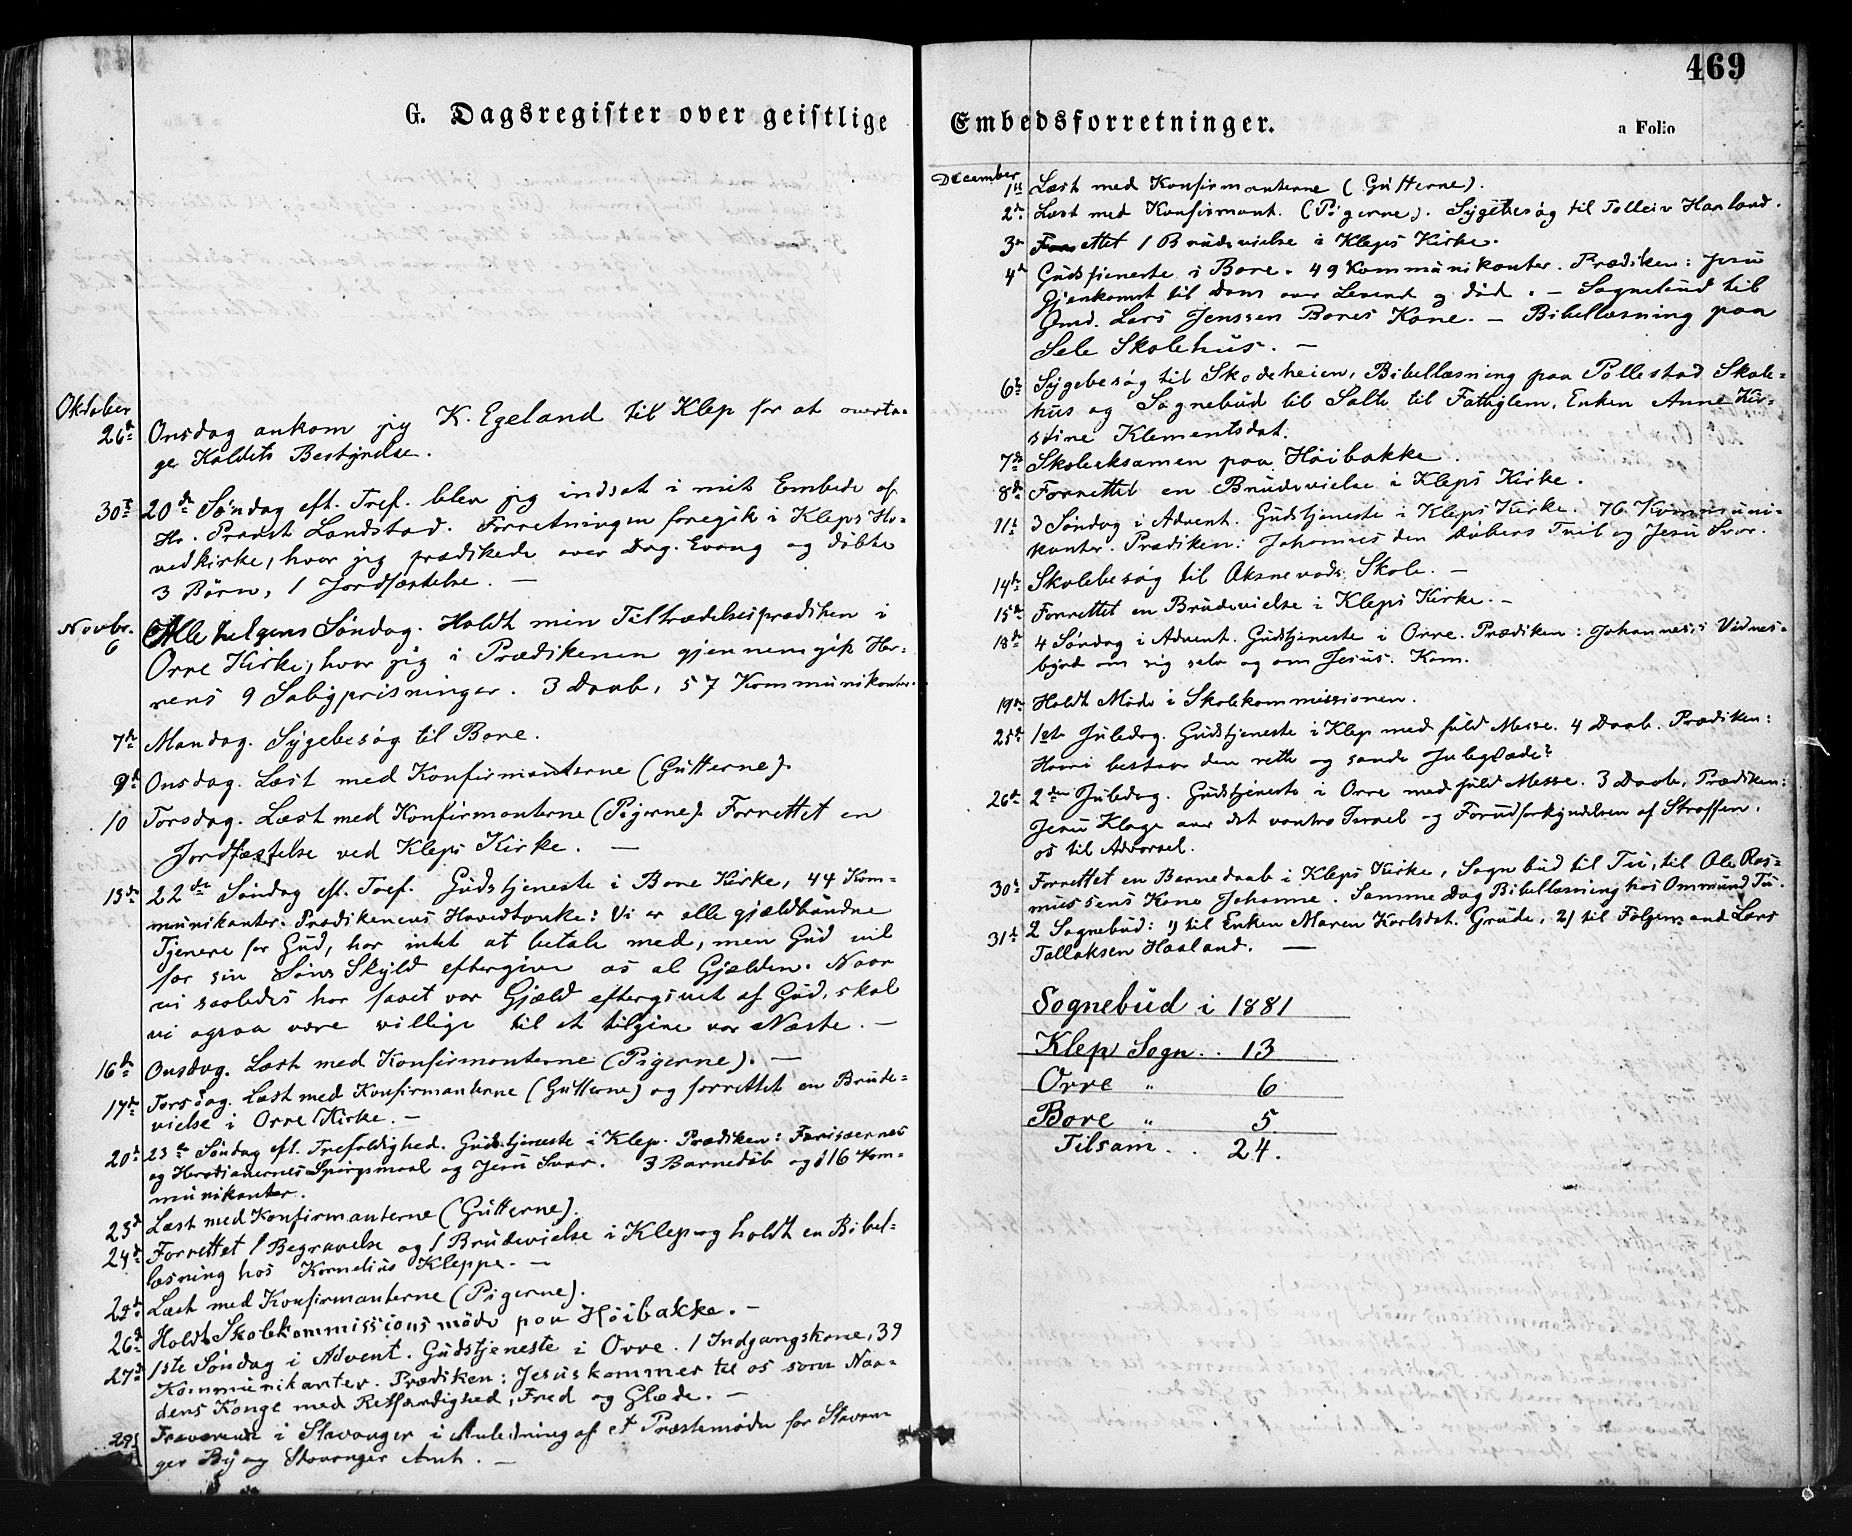 G. Dagsregister over geistlige
Oktober
26de Onsdag ankom jeg K. Egeland til Klep for at overta-
ge Kaldets Bestyrelse.
30te 20de Søndag eft. Tref. blev jeg indsat i mit Embede af
Hr. Provst Landstad. Forretningen foregik i Kleps Ho-
vedkirke, hvor jeg prædikede over Dag. Evang og døbte
3 Børn, 1 Jordfæstelse. —
Novbr.
6 Alle helgens Søndag. Holdt min Tiltrædelsesprædiken i
Orre Kirke, hvor jeg i Prædikenen gjennemgik Her-
rens 9 Saligprisninger. 3 Daab, 57 Kommunikanter.
7de Mandag. Sygebesøg til Bore.
9de Onsdag. Læst med Konfirmanterne (Gutterne).
10 Torsdag. Læst med Konfirmanterne (Pigerne). Forrettet en
Jordfæstelse ved Kleps Kirke. —
13de 22de Søndag eft. Tref. Gudstjeneste i Bore Kirke, 44 Kom-
munikanter. Prædikenens Hovedtanke: Vi er alle gjældbundne
Tjenere for Gud, har intet at betale med, men Gud vil
for sin Søns Skyld eftergive os al Gjælden. Naar
vi saaledes har faaet vor Gjæld eftergivet af Gud, skal
vi ogsaa være villige til at tilgive vor Næste. —
16de Onsdag. Læst med Konfirmanterne (Pigerne). —
17de Torsdag. Læst med Konfirmanterne (Gutterne) og forrettet en Brude-
vielse i Orre Kirke. —
20de 23de Søndag eft. Trefoldighed. Gudstjeneste i Klep. Prædiken: Farisæernes
og Herodianernes Spørgsmaal og Jesu Svar. 3 Barnedåb og 116 Kom-
munikanter.
23de Læst med Konfirmanterne (Gutterne).
24de Forrettet 1 Begravelse og 1 Brudevielse i Klep og holdt en Bibel-
læsning hos Kornelius Kleppe. —
25de Læst med Konfirmanterne (Pigerne).
26de Holdt Skolekommissionsmøde paa Høibakke. —
27de 1ste Søndag i Advent. Gudstjeneste i Orre. 1 Indgangskone, 39
Kommunikanter. Prædiken: Jesus kommer til os som Naa-
dens Konge med Retfærdighed, Fred og Glæde. —
29 Fraværende i Stavanger i Anledning af et Præstemøde for Stavan-
ger By og Stavanger Amt. —
469
Embedsforretninger.
a Folio
December
1ste Læst med Konfirmanterne (Gutterne).
2de Læst med Konfirmant. (Pigerne). Sygebesøg til Tolleiv Haaland.
3de Forrettet 1 Brudevielse i Kleps Kirke.
4de Gudstjeneste i Bore. 49 Kommunikanter. Prædiken: Jesu
Gjenkomst til Dom over Levende og døde. — Sognebud til
Gmd. Lars Jenssen Bores Kone. — Bibellæsning paa
Sele Skolehus. —
6te Sygebesøg til Skodeheien, Bibellæsning paa Pollestad Skole-
hus og Sognebud til Salte til Fattiglem, Enken Anne Kir-
stine Klementsdat.
7de Skoleeksamen paa Høibakke.
8de Forrettet en Brudevielse i Kleps Kirke.
11te 3 Søndag i Advent. Gudstjeneste i Kleps Kirke. 76 Kommuni-
kanter. Prædiken: Johannes den Døbers Tvil og Jesu Svar.
14de Skolebesøg til Aksnevads Skole. —
15de Forrettet en Brudevielse i Kleps Kirke. —
18de 4 Søndag i Advent. Gudstjeneste i Orre. Prædiken: Johannes's Vidnes-
byrd om sig selv og om Jesus. Kom.
19de Holdt Møde i Skolekommissionen.
25de 1ste Juledag. Gudstjeneste i Klep med fuld Messe. 4 Daab. Prædiken:
Hvori bestaar den rette og sande Juleglæde?
26de 2den Juledag. Gudstjeneste i Orre med fuld Messe. 3 Daab, Prædiken:
Jesu Klage over det vantro Israel og Forudforkyndelsen af Straffen,
os til Advarsel.
30te Forrettet en Barnedaab i Kleps Kirke, Sognebud til Tu, til Ole Ras-
mussens Kone Johanne. Samme Dag Bibellæsning hos Ommund Tu.
31te 2 Sognebud: 1) til Enken Maren Karlsdat. Grude, 2) til Følgemand Lars
Tollaksen Haaland. —
Sognebud i 1881
Klep Sogn.. 13
Orre " 6
Bore " 5
Tilsam... 24.